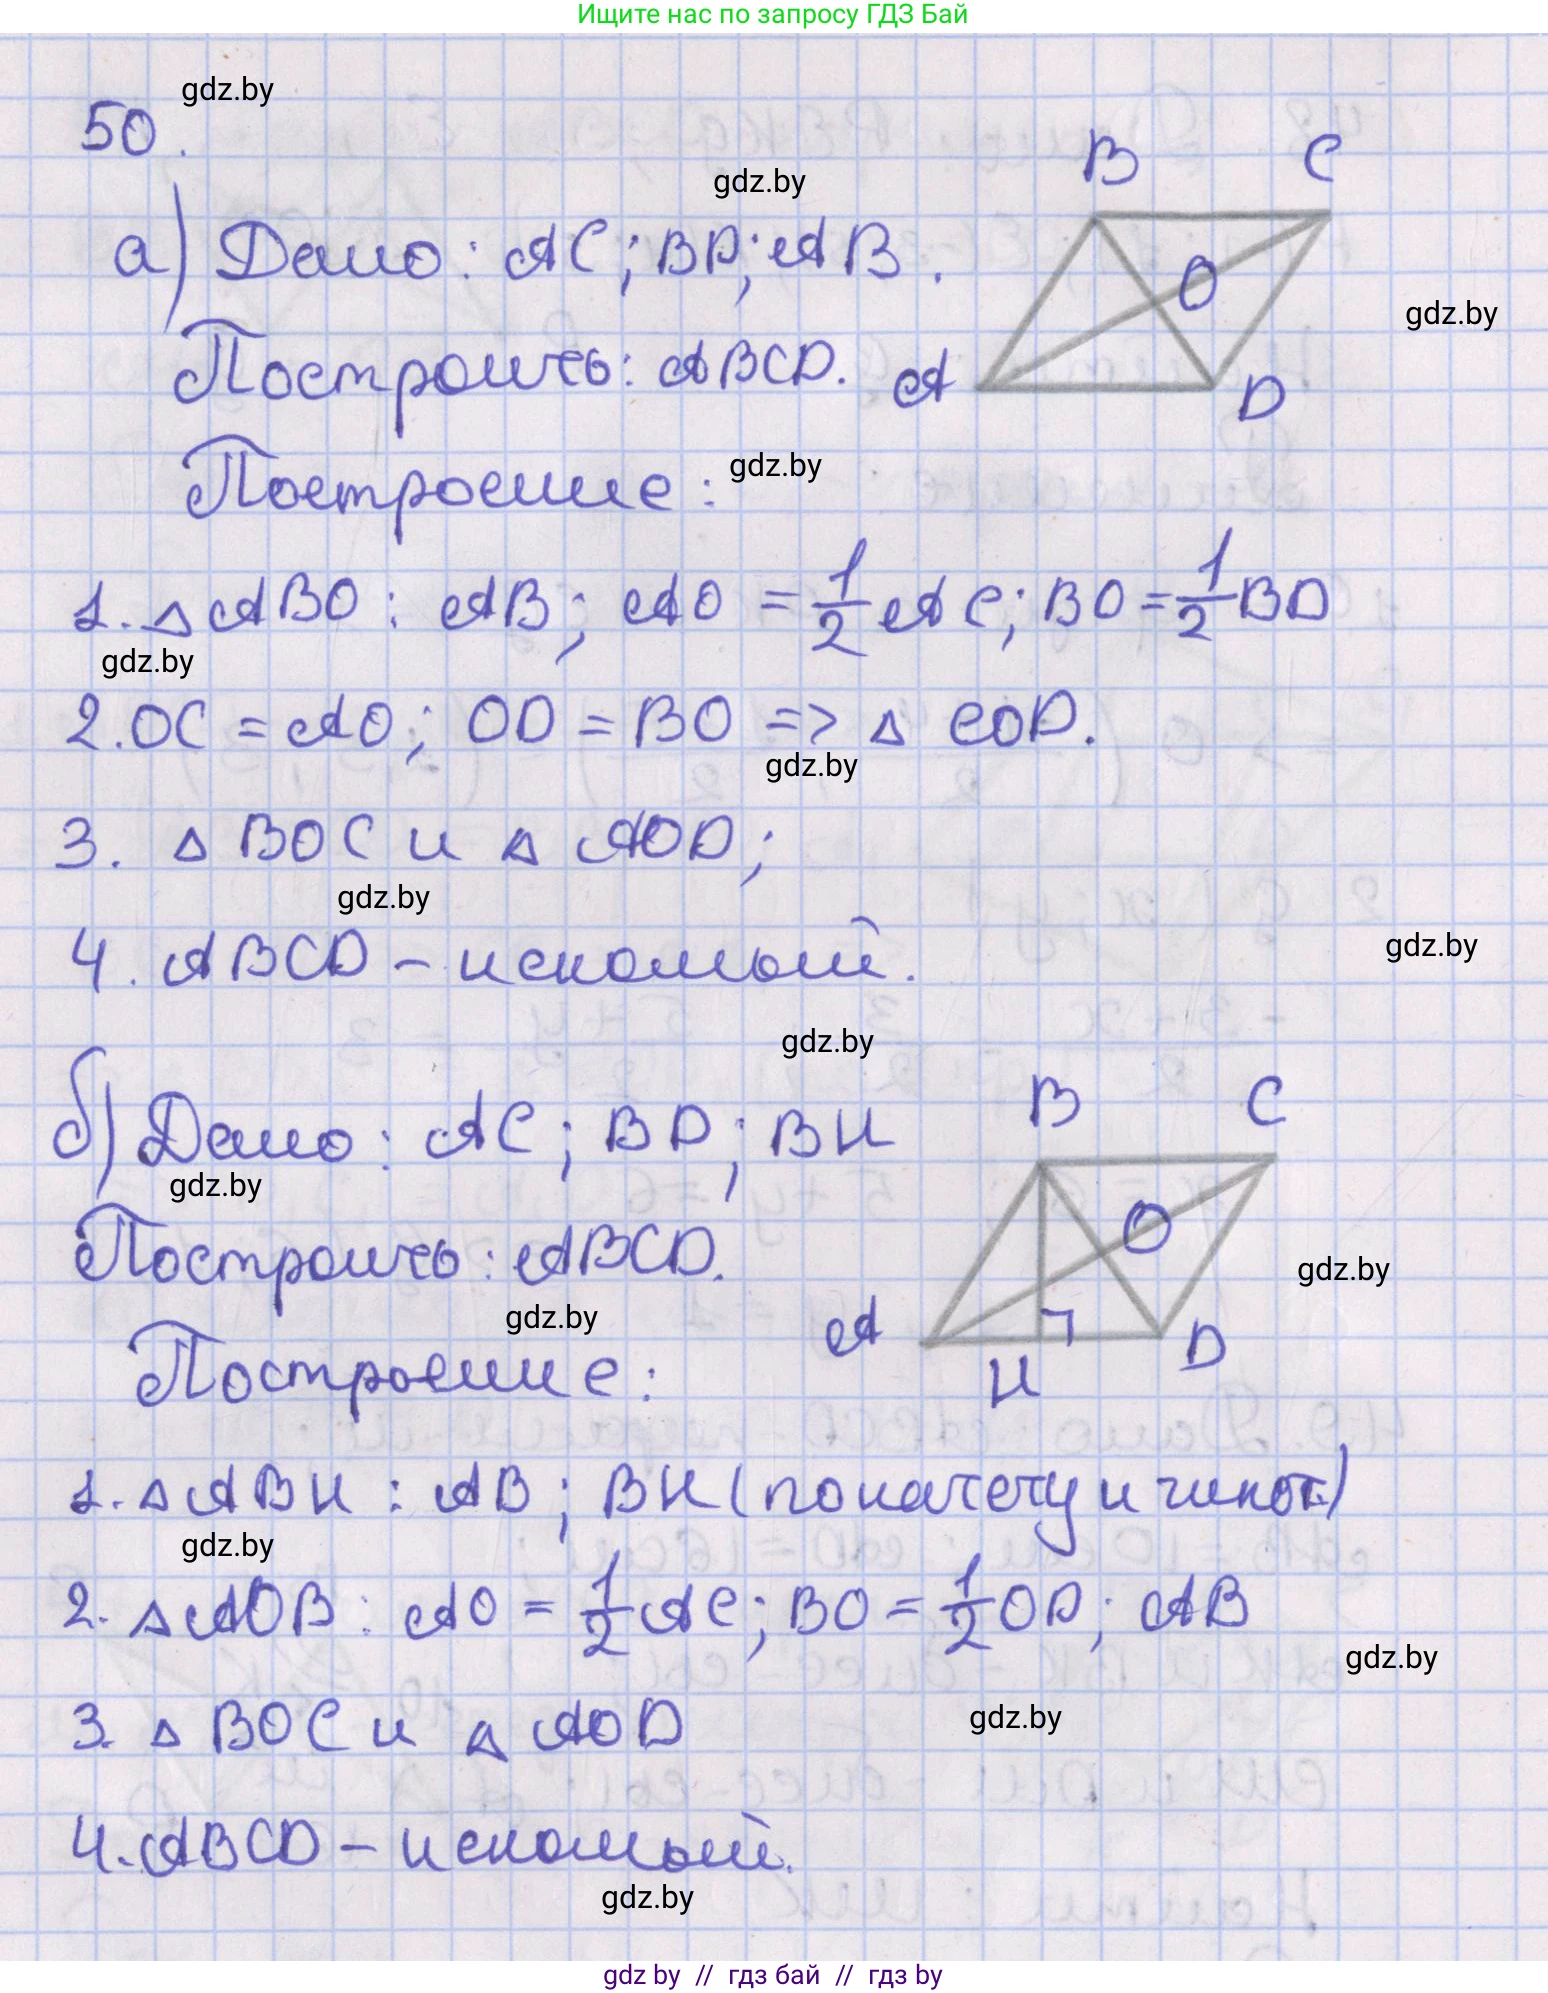 Ищите нас по запросу ГДЗ Бай
gdz.by
50.
gdz.by
B C
а) Дано: AC; BD; AB.
O
gdz.by
Построить: ABCD.
A D
Построение:
gdz.by
1. △ ABO : AB; AO = 1/2 AC; BO = 1/2 BD
gdz.by
2. OC = AO; OD = BO => △ COD.
gdz.by
3. △ BOC и △ AOD;
gdz.by
4. ABCD – искомый.
gdz.by
gdz.by
B C
б) Дано: AC; BD; BH
gdz.by
O
Построить: ABCD.
gdz.by
gdz.by
A D
Построение:
H
1. △ ABH : AB; BH (по катету и гипот.)
gdz.by
2. △ AOB : AO = 1/2 AC; BO = 1/2 OD; AB
gdz.by
3. △ BOC и △ AOD
gdz.by
4. ABCD – искомый.
gdz.by
gdz by // гдз бай // гдз by